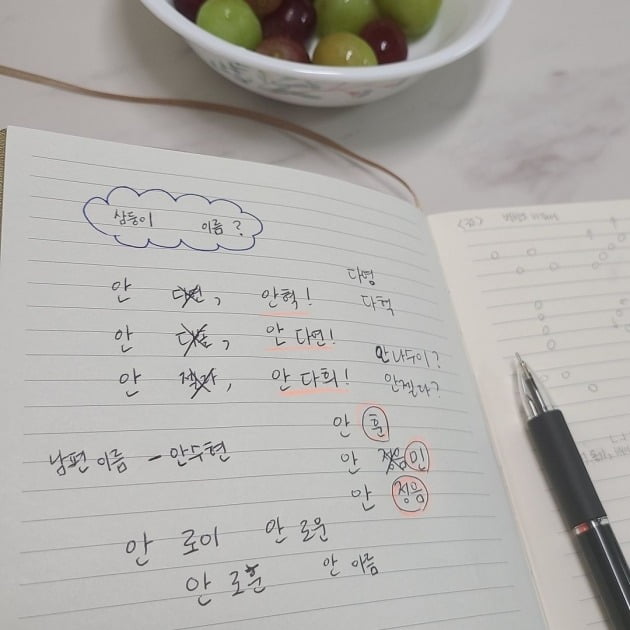 삼둥이 이름?
다영
안 다연, 안혁!
다혁
안 안 다연!
안나수이?
안 젤라, 안 다희!
안젤라?
안 훈
남편 이름 - 안수현
안 정음 민
안 정음
안 로이 안 로운
안 로훈 안 이름